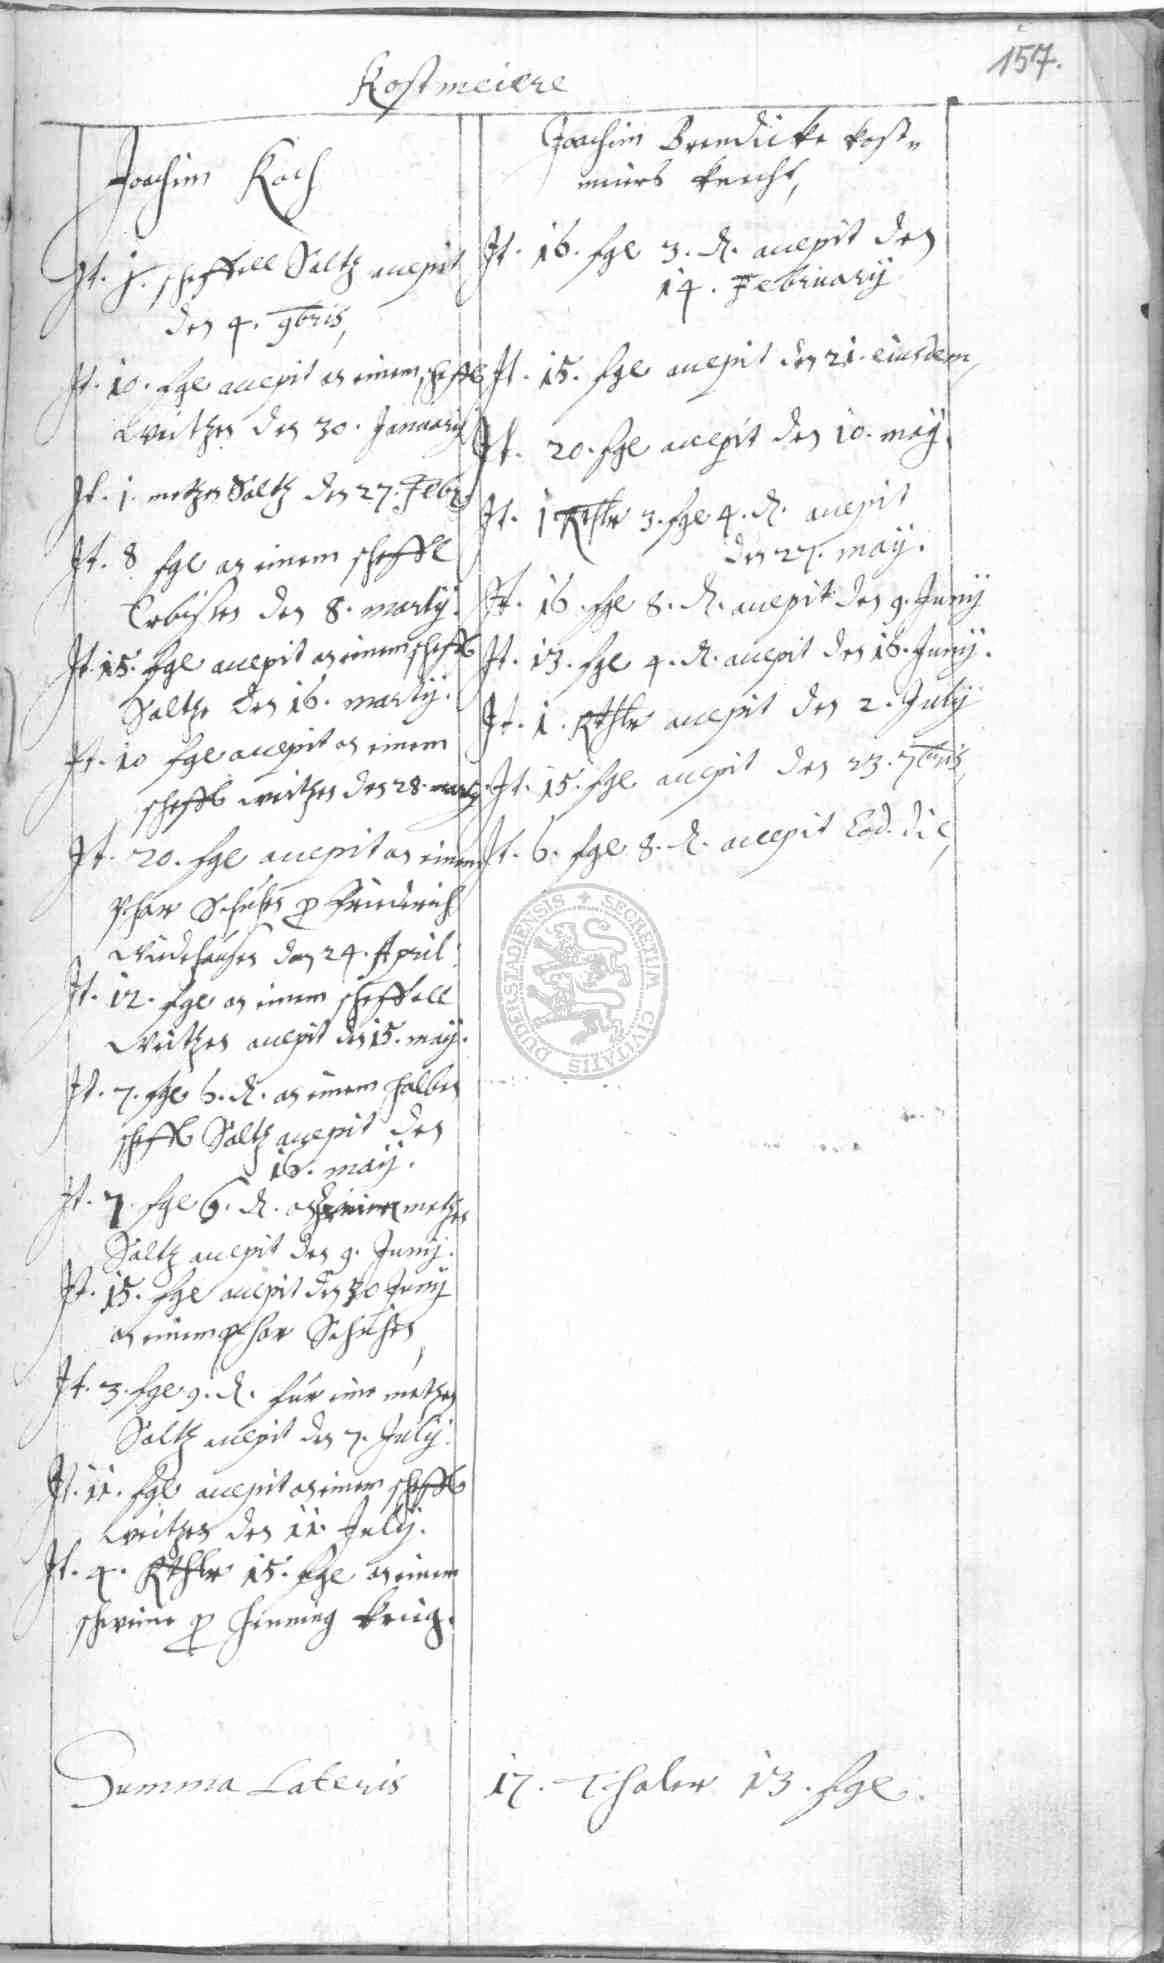 157.
Kostmeiere
Joachim Koch
It. j. scheffell Saltz accepit
den 4. 9bris,
It. 10. sgl accepit an einem scheffl
Weitzen den 30. January
It. 1. metzen Saltz den 27. Febr.
It. 8 sgl an einem scheffl
Erbissen den 8. marty.
It. 15. sgl accepit an einem scheffl
Saltz den 16. marty.
It. 10 sgl accepit an einem
scheffl weitzen den 28. marty.
It. 20. sgl accepit an einem
Phar Schuhen p Friederich
den 24. April.
It. 12. sgl an einem scheffell
Weitzen accepit den 15. maij.
It. 7. sgl 6. d. an einem halben
scheffl Saltz accepit den
16. maij.
It. 7. sgl 6. d. an metzen
Saltz accepit den 9. Junij.
It. 15. sgl accepit den 30 Junij
an einem phar Schuhen,
It. 3. sgl 9. d. für eine metzen
Saltz accepit den 7. Julij.
It. 11. sgl accepit an einem scheffl
weitzen den 11. Julij.
It. 4. Rthlr 15. sgl an einem
schweine p Henning Krieg.
Joachim Brendicke kost-
meiers knecht,
It. 16. sgl 3. d. accepit den
14. February
It. 15. sgl accepit den 21. eiusdem,
It. 20. sgl accepit den 10. maij.
It. 1 Rthlr 3. sgl 4. d. accepit
den 27. maij.
It. 16. sgl 8. d. accepit den 9. Junij
It. 13. sgl 4. d. accepit den 16. Junij.
It. 1. Rthlr accepit den 2. Julij
It. 15. sgl accepit den 23. 7bris,
It. 6. sgl 8. d. accepit Eod. die,
SECRETUM CIVITATIS DUDERSTADIENSIS
Summa Lateris 17. Thaler 13. sgl.